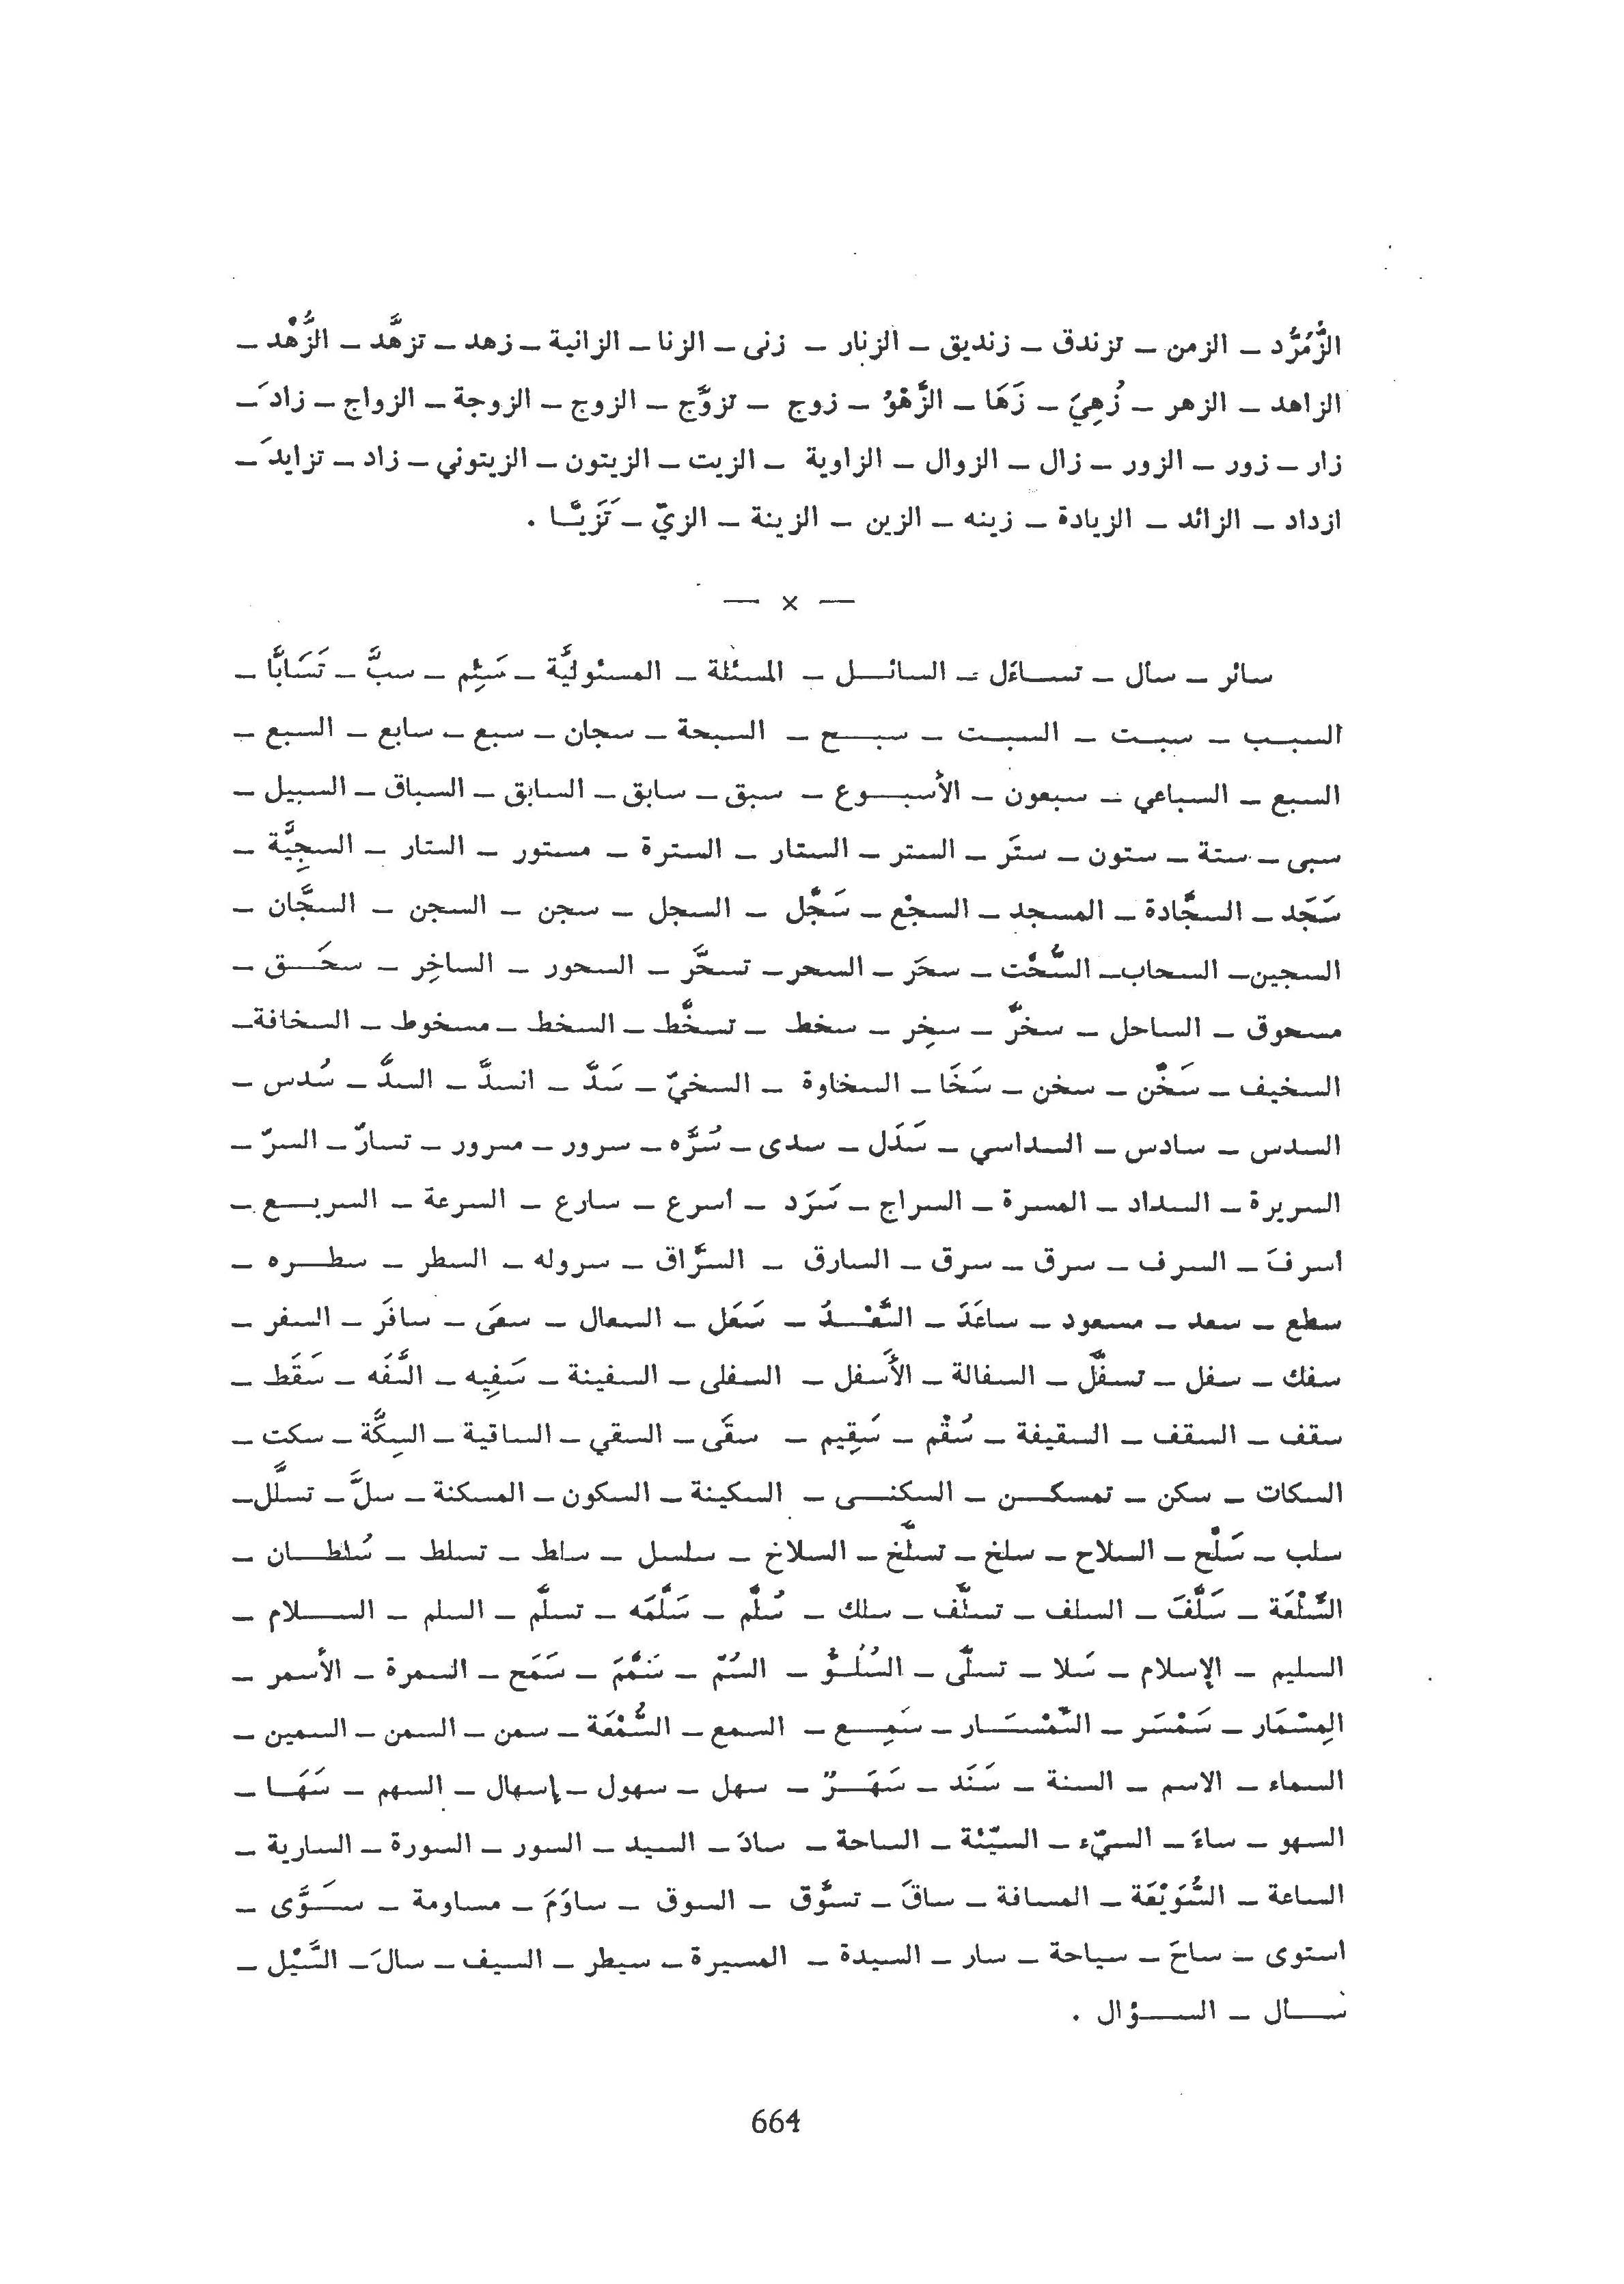 الزُّمُرُّد – الزمن – تزندق – زنديق – الزنار – زنى – الزنا – الزانية – زهد – تزهَّد – الزُّهْد –
الزاهد – الزهر – زُهِيَ – زَهَا – الزَّهْوُ – زوج – تزوَّج – الزوج – الزوجة – الزواج – زادَ –
زار – زور – الزور – زال – الزوال – الزاوية – الزيت – الزيتون – الزيتوني – زاد – تزايدَ –
ازداد – الزائد – الزيادة – زينه – الزين – الزينة – الزيّ – تَزَيَّـا .
— × —
سائر – سأل – تساءَل – السائل – المسئلة – المسئوليَّة – سَئِم – سبَّ – تَسَابَّا –
السبب – سبت – السبت – سبح – السبحة – سجان – سبع – سابع – السبع –
السبع – السباعي – سبعون – الأسبوع – سبق – سابق – السابق – السباق – السبيل –
سبى – ستة – ستون – ستَر – الستر – الستار – السترة – مستور – الستار – السجِيَّة –
سَجَد – السجَّادة – المسجد – السجْع – سَجَّل – السجل – سجن – السجن – السجَّان –
السجين – السحاب – السُّحْت – سحَر – السحر – تسحَّر – السحور – الساخِر – سحَق –
مسحوق – الساحل – سخرَّ – سخِر – سخط – تسخَّط – السخط – مسخوط – السخافة –
السخيف – سَخَّن – سخن – سَخَا – السخاوة – السخيّ – سَدَّ – انسدَّ – السدَّ – سُدس –
السدس – سادس – السداسي – سَدَل – سدى – سُرَّه – سرور – مسرور – تسارّ – السرّ –
السريرة – السداد – المسرة – السراج – سَرَد – اسرع – سارع – السرعة – السريع –
اسرفَ – السرف – سرق – سرق – السارق – السرَّاق – سروله – السطر – سطره –
سطع – سعد – مسعود – ساعَدَ – السَّعْدُ – سَعَل – السعال – سعَى – سافَر – السفر –
سفك – سفل – تسفَّل – السفالة – الأَسفل – السفلى – السفينة – سَفِيه – السَّفَه – سَقَط –
سقف – السقف – السقيفة – سُقْم – سَقِيم – سقَى – السقي – الساقية – السِكَّة – سكت –
السكات – سكن – تمسكن – السكنى – السكينة – السكون – المسكنة – سلَّ – تسلَّل –
سلب – سَلَّح – السلاح – سلخ – تسلَّخ – السلاخ – سلسل – سلط – تسلط – سُلطان –
السِّلْعَة – سَلَّفَ – السلف – تسلَّف – سلك – سُلَّم – سَلَّمَه – تسلَّم – السلم – السلام –
السليم – الإسلام – سَلا – تسلَّى – السُلُوُّ – السُمّ – سَمَّمَ – سَمَح – السمرة – الأسمر –
المِسْمَار – سَمْسَر – السَّمْسَار – سَمِع – السمع – السُّمْعَة – سمن – السمن – السمين –
السماء – الاسم – السنة – سَنَد – سَهَرٌ – سهل – سهول – إسهال – السهم – سَهَا –
السهو – ساءَ – السيّء – السيّئة – الساحة – سادَ – السيد – السور – السورة – السارية –
الساعة – السُّوَيْعَة – المسافة – ساقَ – تسوَّق – السوق – ساوَمَ – مساومة – سَوَّى –
استوى – ساحَ – سياحة – سار – السيدة – المسيرة – سيطر – السيف – سالَ – السَّيْل –
سأل – السؤال .
664